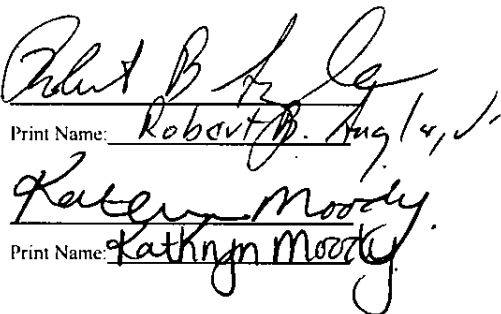 Robert B
Print Name: Robert B.
Kathryn Moody
Print Name: Kathryn Moody